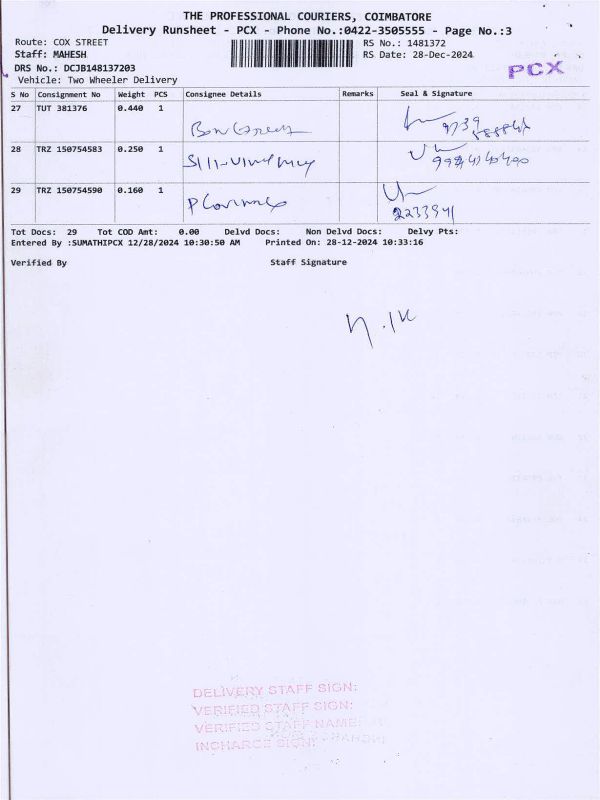 THE PROFESSIONAL COURIERS, COIMBATORE
Delivery Runsheet - PCX - Phone No.:0422-3505555 - Page No.:3
Route: COX STREET RS No.: 1481372
Staff: MAHESH RS Date: 28-Dec-2024
DRS No.: DCJB148137203
PCX
Vehicle: Two Wheeler Delivery
S No Consignment No Weight PCS Consignee Details Remarks Seal & Signature
27 TUT 381376 0.440 1
28 TRZ 150754583 0.250 1
29 TRZ 150754590 0.160 1
2233941
Tot Docs: 29 Tot COD Amt: 0.00 Delvd Docs: Non Delvd Docs: Delvy Pts:
Entered By :SUMATHIPCX 12/28/2024 10:30:50 AM Printed On: 28-12-2024 10:33:16
Verified By Staff Signature
DELIVERY STAFF SIGN:
VERIFIED STAFF SIGN:
VERIFIED STAFF NAME:
INCHARGE SIGN: